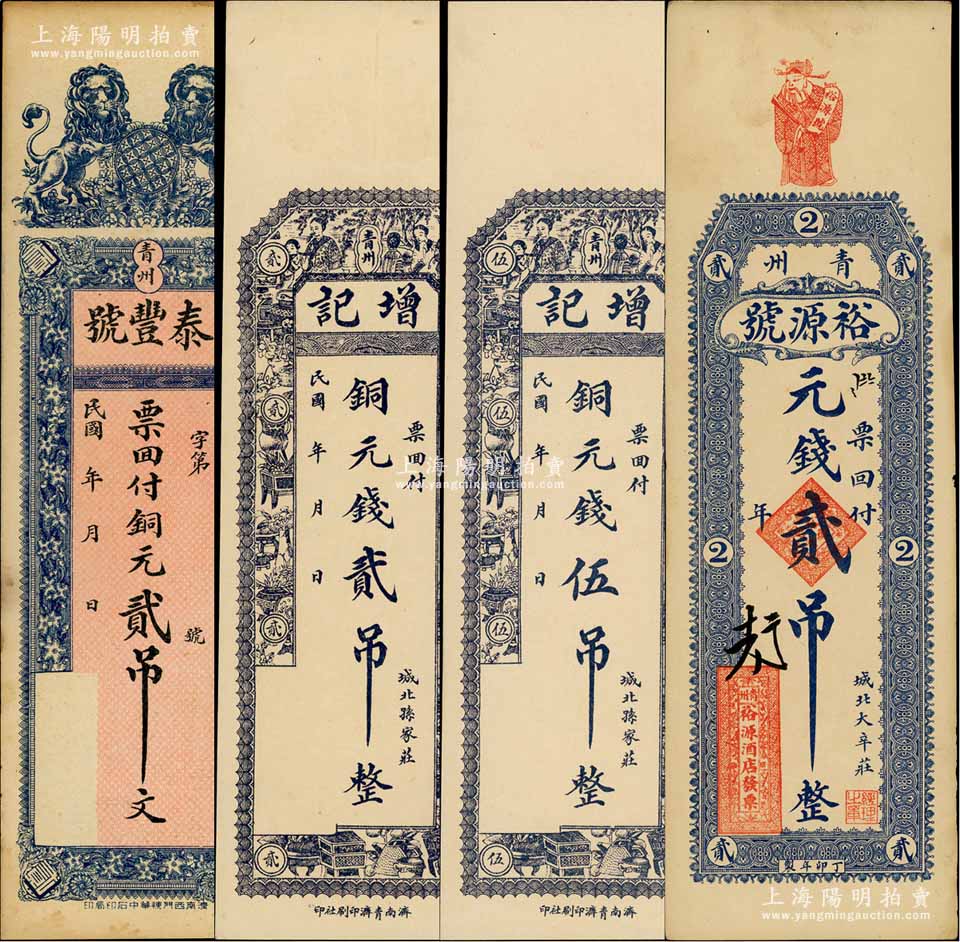 上海陽明拍賣
www.yangmingauction.com
青州
泰豐號
字第 號
票回付銅元貳吊文
民國 年 月 日
濟南西門裡華中石印局印
青州
貳
增記
票回付
銅元錢貳吊整
民國 年 月 日
城北孫家莊
貳
貳
貳
濟南青濟印刷社印
青州
伍
增記
票回付
銅元錢伍吊整
民國 年 月 日
城北孫家莊
伍
伍
伍
濟南青濟印刷社印
上海陽明拍賣
www.yangmingauction.com
裕源號
2
貳 貳
青州
裕源號
此票回付
元錢貳吊整
年
2 2
城北大辛莊
青州
裕源酒店發票
經理之章
貳 貳
丁卯年製
上海陽明拍賣
www.yangmingauction.com